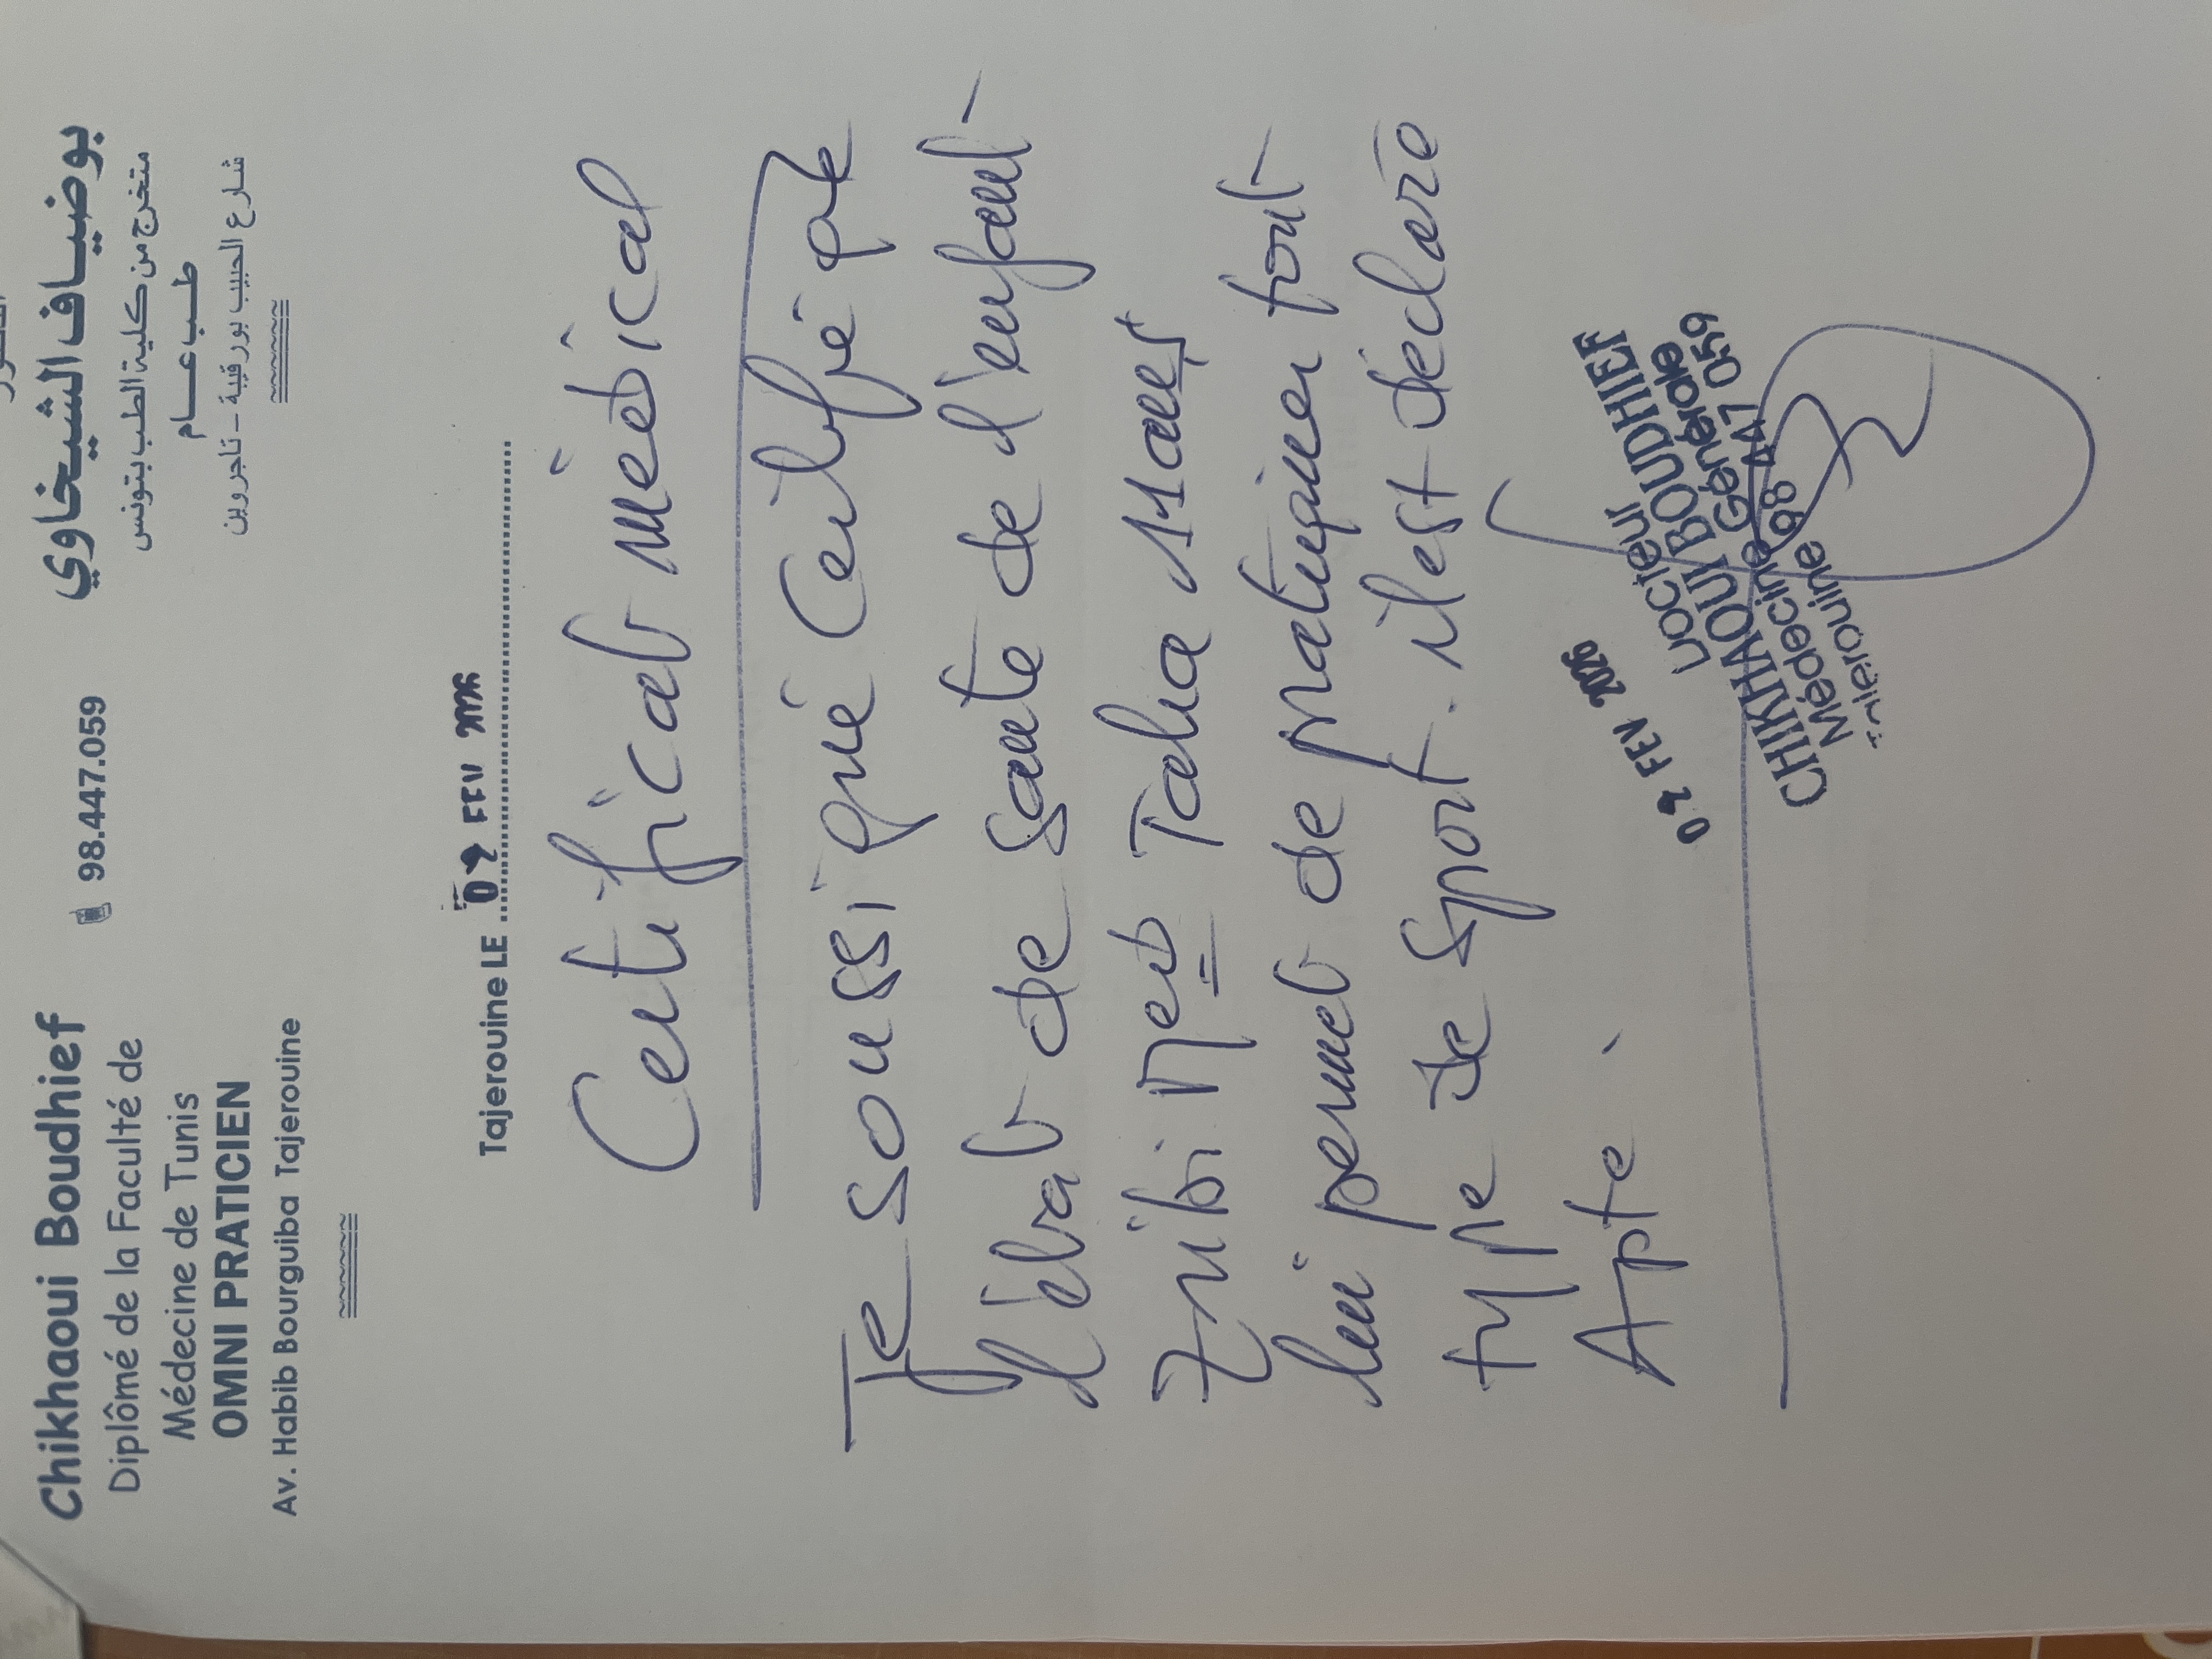 Chikhaoui Boudhief
Diplômé de la Faculté de
Médecine de Tunis
OMNI PRATICIEN
Av. Habib Bourguiba Tajerouine
98.447.059
بوضياف الشيخاوي
متخرج من كلية الطب بتونس
طب عام
شارع الحبيب بورقيبة - تاجروين
Tajerouine LE 02 FEV 2026
Certificat médical
Je soussigné Certifie que
l'état de santé de l'enfant
Med Talia 11 ans
lui permet de pratiquer tout
type de sport. il est déclaré
Apte.
02 FEV 2026
Docteur
CHIKHAOUI BOUDHIEF
Médecine Générale
Tajerouine 98 447 059